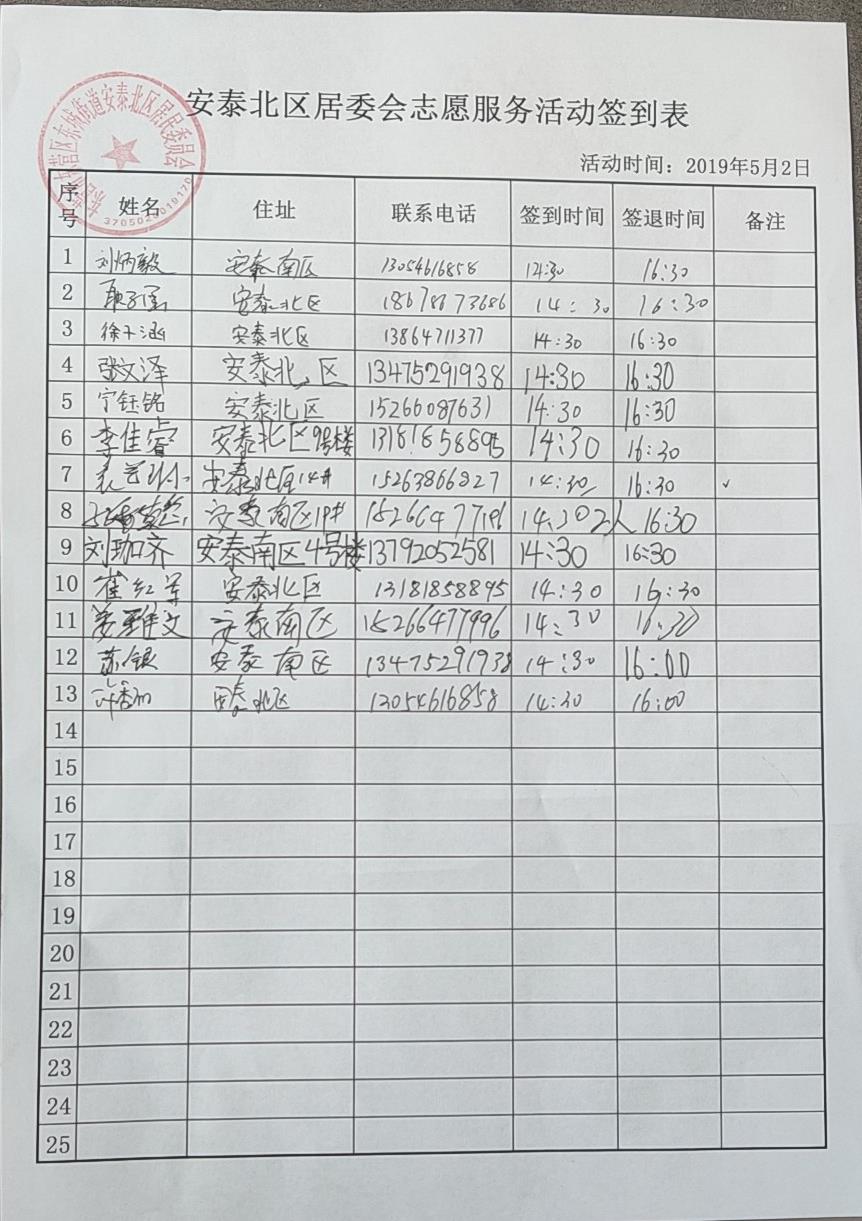 安泰北区居委会志愿服务活动签到表
东营区东城街道安泰北区居民委员会
3705020019170
活动时间：2019年5月2日
序号 姓名 住址 联系电话 签到时间 签退时间 备注
1 刘炳毅 安泰南区 13054616858 14:30 16:30
2 安泰北区 18678673686 14:30 16:30
3 徐子涵 安泰北区 13864711377 14:30 16:30
4 张文泽 安泰北区 13475291938 14:30 16:30
5 宁钰铭 安泰北区 15266087631 14:30 16:30
6 李佳睿 安泰北区9号楼 13181858895 14:30 16:30
7 安泰北区14# 15263866827 14:30 16:30 ✓
8 安泰南区19# 14:30 2人 16:30
9 刘珈齐 安泰南区4号楼 13792052581 14:30 16:30
10 崔红军 安泰北区 13181858895 14:30 16:30
11 姜雅文 安泰南区 15266477996 14:30 16:30
12 苏银 安泰南区 13475291938 14:30 16:00
13 安泰北区 13054616858 14:30 16:00
14
15
16
17
18
19
20
21
22
23
24
25